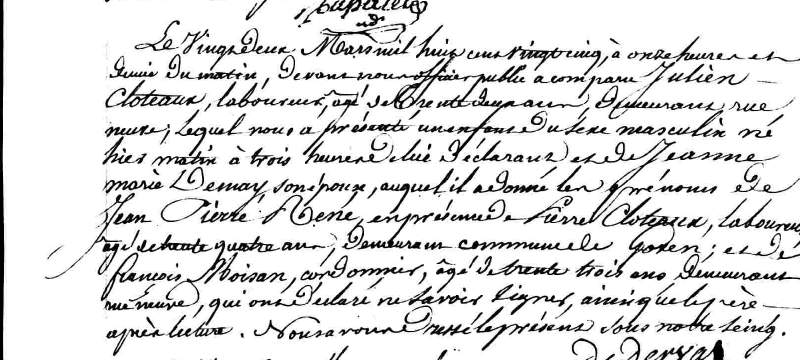 Le Vingt deux Mars mil huit cent vingt cinq, à onze heures et
demie du matin, devant nous officier public a comparu Julien
Cloteaux, laboureur, âgé de trente deux ans, demeurant rue
neuve; lequel nous a présenté un enfant du sexe masculin né
hier matin à trois heures de lui déclarant et de Jeanne
marie Demay son épouse, auquel il a donné les prénoms de
Jean Pierre René, en présence de Pierre Cloteaux, laboureur
âgé de trente quatre ans, demeurant commune de Goven; et de
françois Moisan, cordonnier, âgé de trente trois ans demeurant
rue neuve, qui ont déclaré ne savoir signer, ainsi que le père
après lecture. Nous avons dressé le présent sous notre seing.